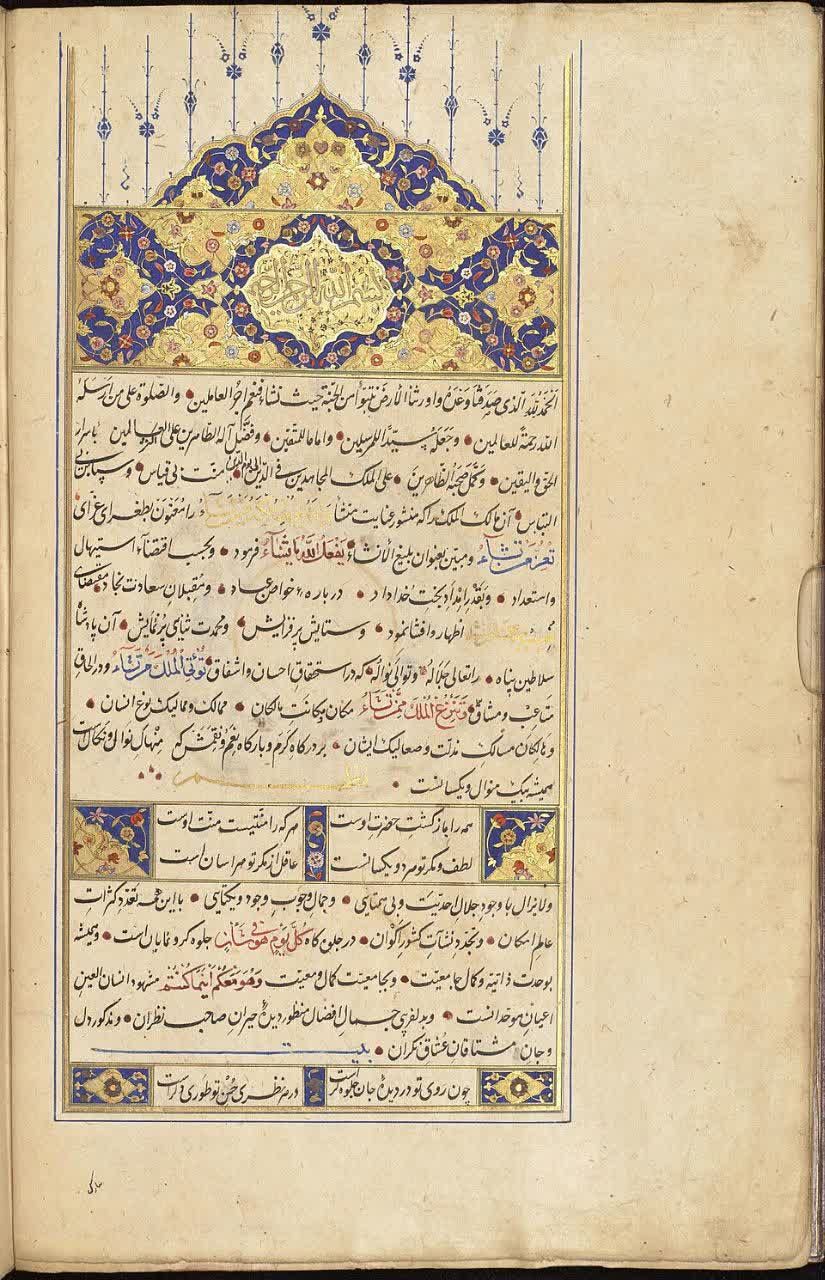 بسم الله الرحمن الرحیم
الحمد لله الذی صدقنا وعده واورثنا الارض نتبوا من الجنة حیث نشاء فنعم اجر العاملین والصلوة علی من ارسله
الله رحمة للعالمین وجعله سید المرسلین واماما للمتقین وفضل آله الطاهرین علی العالمین باسرار
الحق والیقین وکمل صحبه الظاهرین علی الملک المجاهدین فی الدین منت بی قیاس وسپاس بی
التباس آن مالک الملک را که منشور عنایت منشا را معنون بطغرای غرای
تعز من تشاء ومبین بعنوان بلیغ الانشاء یفعل الله ما یشاء فرمود وبحسب اقتضاء استیهال
واستعداد وبقدر امداد بخت خداداد درباره خواص عباد ومقبلان سعادت نجاد مقتضای
اظهار وافشا نمود وستایش برفزایش ومحمدت ثنای پرنمایش آن پادشاه
سلاطین پناه را تعالی جلاله وتوالی نواله که در استحقاق احسان واشفاق تؤتی الملک من تشاء ودر الحاق
متاعب ومشاق وتنزع الملک ممن تشاء مکان ومکانت مالکان ممالک وممالیک نوع انسان
وهالکان مسالک مذلت وصعالیک ایشان بر درگاه کرم وبارگاه نعم ونقمش که منهال نوال ونکال است
همیشه بیک منوال ویکسانست نظم
همه را بازگشت حضرت اوست هر که را منتیست منت اوست
لطف ومکر تو مرد ویکسانست عاقل از مکر تو هراسان است
ولایزال با وجود جلال احدیت وبی همتایی وجمال وجوب وجود ویکتایی با این همه تعدد کثرات
عالم امکان وتجدد نشآت کشور اکوان در جلوه گاه کل یوم هو فی شان جلوه گر ونمایان است وهمیشه
بوحدت ذاتیه وکمال جامعیت وبجامعیت کمال ومعیت وهو معکم اینما کنتم مشهود انسان العین
اعیان موحدانست وبدلفریبی جمال افضال منظور دیده حیران صاحب نظران ومذکور دل
وجان مشتاقان عشاق نگران بیت
چون روی تو در دیده جان جلوه گر است در هر نظری حسن تو طوری دگر است